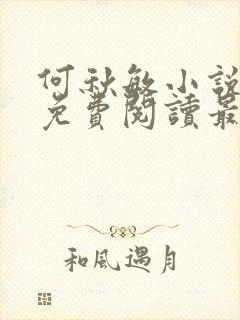 何秋敏小說
免費閱讀最
和風遇月